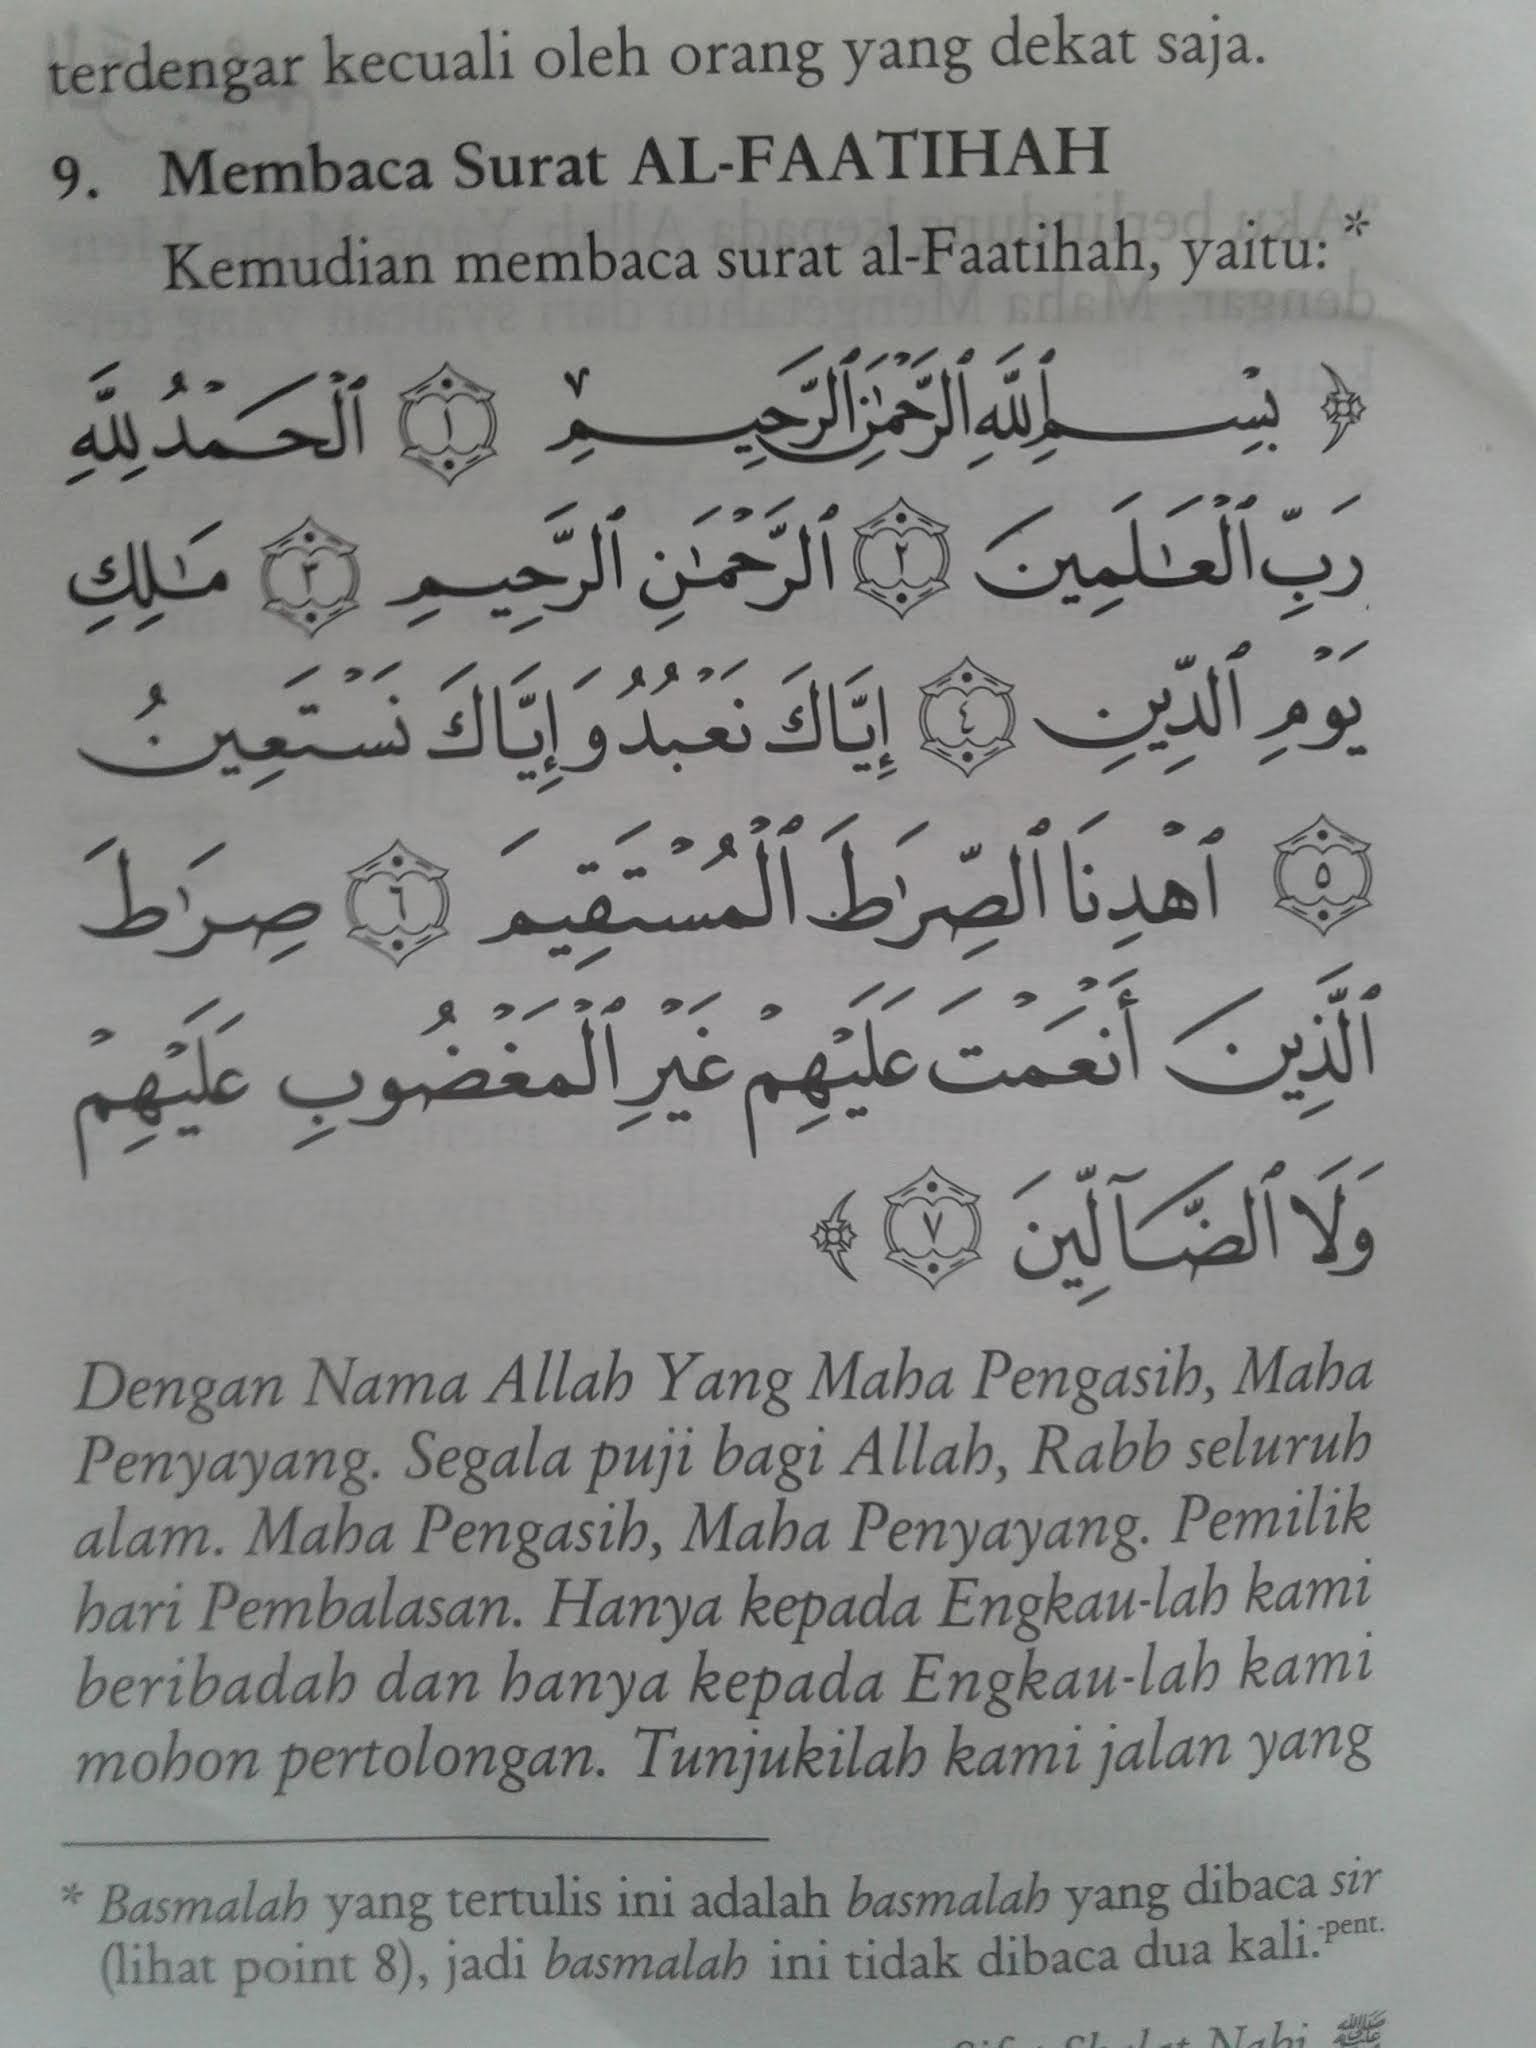 terdengar kecuali oleh orang yang dekat saja.
9. Membaca Surat AL-FAATIHAH
Kemudian membaca surat al-Faatihah, yaitu: *
﴿ بِسْمِ ٱللَّهِ ٱلرَّحْمَٰنِ ٱلرَّحِيمِ ١ ٱلْحَمْدُ لِلَّهِ
رَبِّ ٱلْعَٰلَمِينَ ٢ ٱلرَّحْمَٰنِ ٱلرَّحِيمِ ٣ مَٰلِكِ
يَوْمِ ٱلدِّينِ ٤ إِيَّاكَ نَعْبُدُ وَإِيَّاكَ نَسْتَعِينُ
٥ ٱهْدِنَا ٱلصِّرَٰطَ ٱلْمُسْتَقِيمَ ٦ صِرَٰطَ
ٱلَّذِينَ أَنْعَمْتَ عَلَيْهِمْ غَيْرِ ٱلْمَغْضُوبِ عَلَيْهِمْ
وَلَا ٱلضَّآلِّينَ ٧ ﴾
Dengan Nama Allah Yang Maha Pengasih, Maha
Penyayang. Segala puji bagi Allah, Rabb seluruh
alam. Maha Pengasih, Maha Penyayang. Pemilik
hari Pembalasan. Hanya kepada Engkau-lah kami
beribadah dan hanya kepada Engkau-lah kami
mohon pertolongan. Tunjukilah kami jalan yang
* Basmalah yang tertulis ini adalah basmalah yang dibaca sir
(lihat point 8), jadi basmalah ini tidak dibaca dua kali.-pent.
Sifat Shalat Nabi ﷺ